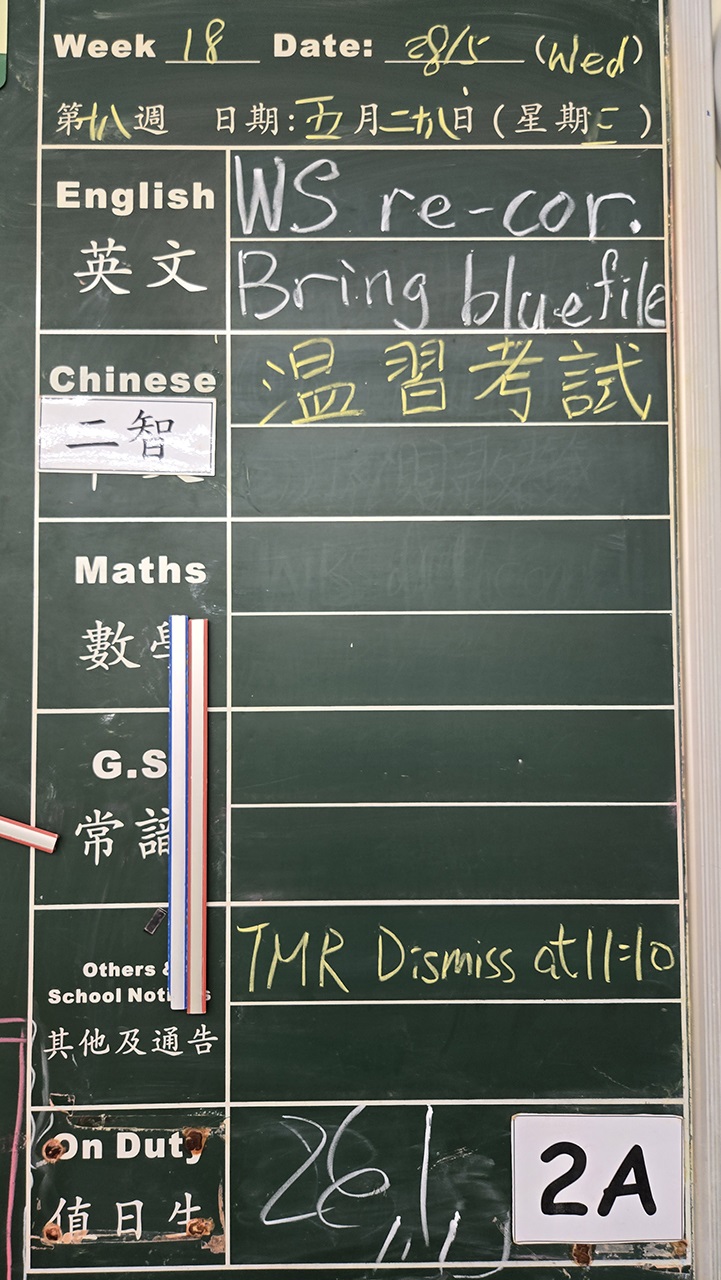 Week 18 Date: 28/5 (Wed)
第十八週 日期:五月二十八日(星期三)
English
WS re-cor.
英文
Bring blue file
Chinese
温習考試
二智
Maths
數學
G.S
常識
Others &
School Notices
TMR Dismiss at 11:10
其他及通告
On Duty
值日生
26
2A